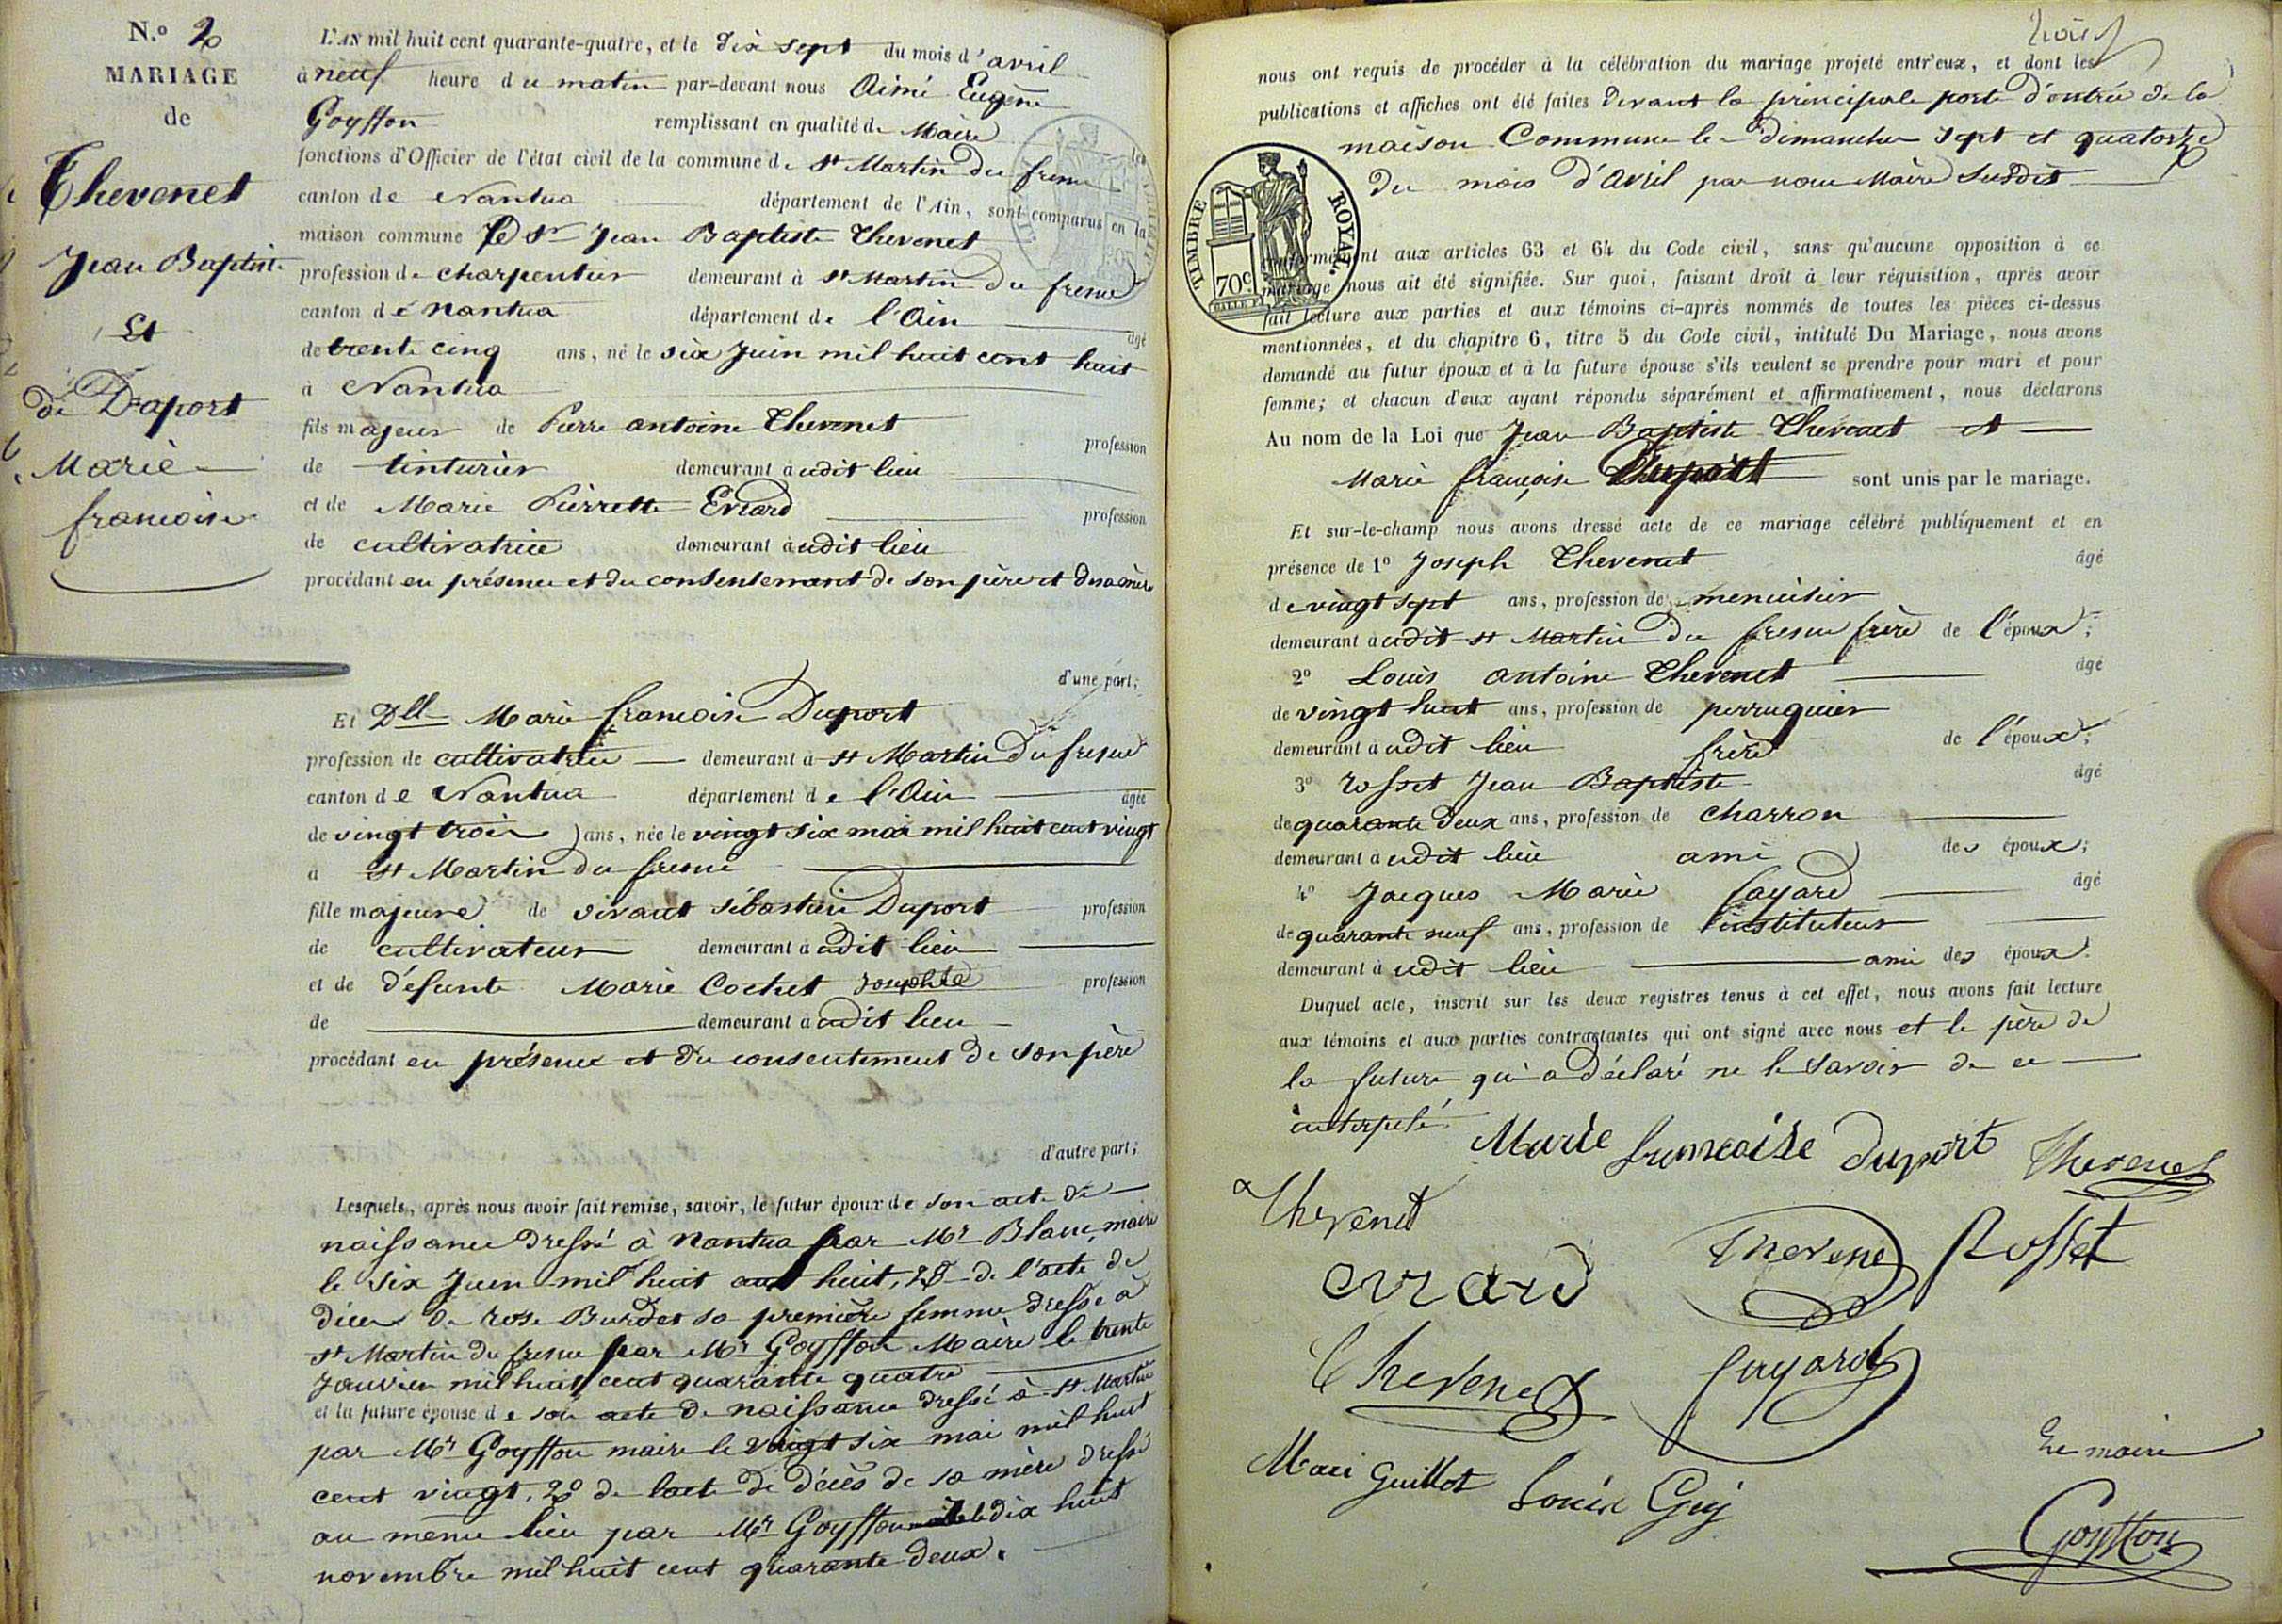 N.o 2
MARIAGE
de
Thevenet
Jean Baptiste
Et
de Duport
Marie
francoise
L'AN mil huit cent quarante-quatre, et le dix sept du mois d'avril
à neuf heure du matin par-devant nous Aimé Eugène
Goyffon remplissant en qualité de Maire les
fonctions d'Officier de l'état civil de la commune de St Martin du fresne
canton de Nantua département de l'Ain, sont comparus en la
maison commune le Sr Jean Baptiste Thevenet
profession de charpentier demeurant à St Martin du fresne
canton de Nantua département de l'Ain âgé
de trente cinq ans, né le six Juin mil huit cent huit
à Nantua
fils majeur de Pierre antoine Thevenet profession
de tinturier demeurant à udit lieu
et de Marie Pierrette Evrard profession
de cultivatrice demeurant à udit lieu
procédant en présence et du consentement de son père et de sa mère
d'une part;
Et Dlle Marie francoise Duport
profession de cultivatrice demeurant à St Martin du fresne
canton de Nantua département de l'Ain âgée
de vingt trois ans, née le vingt six mai mil huit cent vingt
à St Martin du fresne
fille majeure de vivant sébastien Duport profession
de cultivateur demeurant à udit lieu
et de défunte Marie Cochet Josephte profession
de demeurant à udit lieu
procédant en présence et du consentement de son père
d'autre part;
Lesquels, après nous avoir fait remise, savoir, le futur époux de son acte de
naissance dressé à Nantua par Mr Blanc, maire
le six Juin mil huit cent huit, 2o de l'acte de
décès de rose Burdet sa première femme dressé à
St Martin du fresne par Mr Goyffon Maire le trente
Janvier mil huit cent quarante quatre
et la future épouse de son acte de naissance dressé à St Martin
par Mr Goyffon maire le vingt six mai mil huit
cent vingt, 2o de l'acte de décès de sa mère dressé
au même lieu par Mr Goyffon le dix huit
novembre mil huit cent quarante deux.
trois
nous ont requis de procéder à la célébration du mariage projeté entr'eux, et dont les
publications et affiches ont été faites devant la principale porte d'entrée de la
maison Commune le dimanche sept et quatorze
du mois d'avril par nous Maire susdit
TIMBRE ROYAL
70c
conformément aux articles 63 et 64 du Code civil, sans qu'aucune opposition à ce
mariage nous ait été signifiée. Sur quoi, faisant droit à leur réquisition, après avoir
fait lecture aux parties et aux témoins ci-après nommés de toutes les pièces ci-dessus
mentionnées, et du chapitre 6, titre 5 du Code civil, intitulé Du Mariage, nous avons
demandé au futur époux et à la future épouse s'ils veulent se prendre pour mari et pour
femme; et chacun d'eux ayant répondu séparément et affirmativement, nous déclarons
Au nom de la Loi que Jean Baptiste Thevenet et
Marie françoise Duport sont unis par le mariage.
Et sur-le-champ nous avons dressé acte de ce mariage célébré publiquement et en
présence de 1o Joseph Thevenet âgé
de vingt sept ans, profession de menuisier
demeurant à udit St Martin du fresne frère de l'époux;
2o Louis antoine Thevenet âgé
de vingt huit ans, profession de perruquier
demeurant à udit lieu frère de l'époux;
3o rosset Jean Baptiste âgé
de quarante deux ans, profession de charron
demeurant à udit lieu ami des époux;
4o Jacques Marie fayard âgé
de quarante neuf ans, profession de l'instituteur
demeurant à udit lieu ami des époux.
Duquel acte, inscrit sur les deux registres tenus à cet effet, nous avons fait lecture
aux témoins et aux parties contractantes qui ont signé avec nous et le père de
la future qui a déclaré ne le savoir de ce
interpelé.
Marie francoise duport Thevenet
Thevenet
evrard Thevenet Rosset
Thevenet fayard
Mari Guillot Louis Guy
Le maire
Goyffon